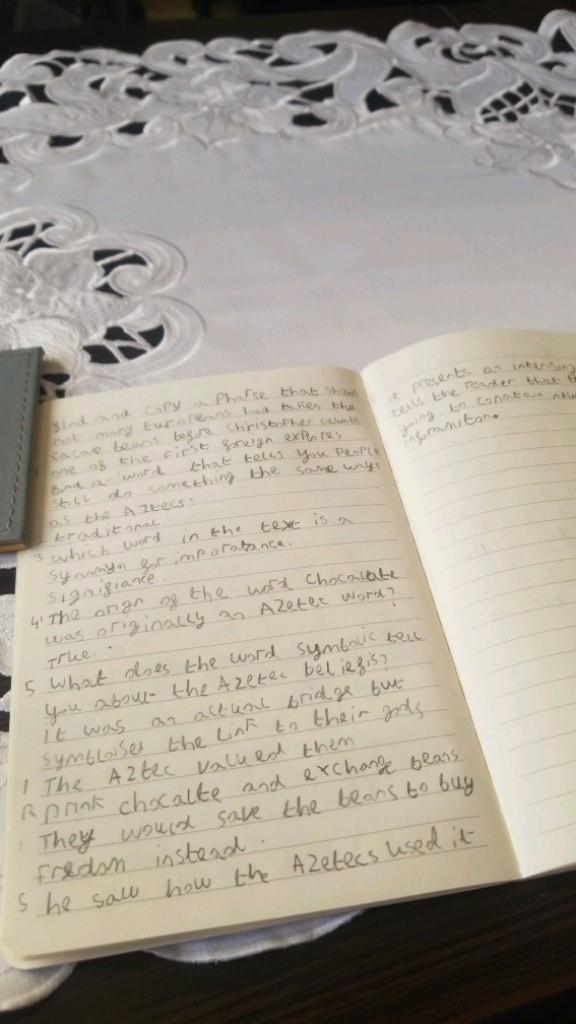 find and copy a Pharse that shows
not many Europeans had taken the
cacao beans before Christopher
one of the first foreign explores
find a word that tells you People
still do something the same ways
as the Aztecs.
traditonal
3 which word in the text is a
synonym for imporatance.
signifiance
4' The orign of the word chocalate
was originally an Azetec word?
True.
5 What does the word symbolic tell
you about the Azetec beliefis?
It was an actual bridge but
symbloises the link to their gods
1 The Aztec valued them
R Drink chocalte and exchange beans
They would save the beans to buy
fredom instead.
S he saw how the Azetecs used it
it presents as
tells the reader that
going to conatain new
inforamiton.